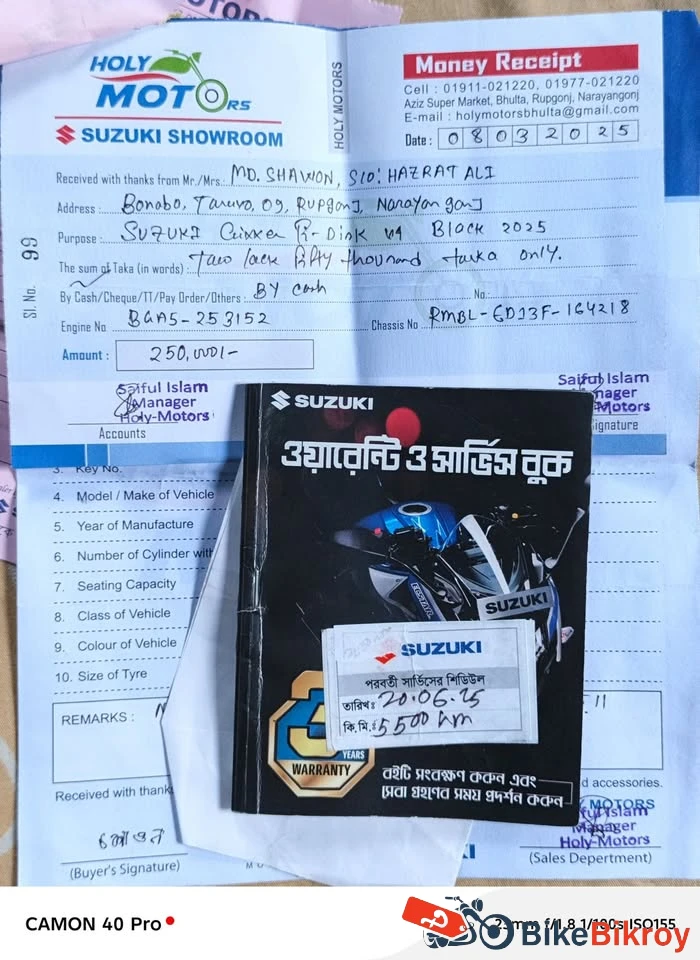 HOLY
MOTORS
SUZUKI SHOWROOM
HOLY MOTORS
Money Receipt
Cell : 01911-021220, 01977-021220
Aziz Super Market, Bhulta, Rupgonj, Narayangonj
E-mail : holymotorsbhulta@gmail.com
Date : 08032025
Received with thanks from Mr./Mrs.: MD. SHAWON, S/O: HAZRAT ALI
Address : Bonobo, Taravo, 09, Rupganj, Narayanganj
Purpose : SUZUKI Gixxer Fi-Disk V4 Black 2025
The sum of Taka (in words) : Two lack fifty thousand taka only.
By Cash/Cheque/TT/Pay Order/Others : BY cash No.
Engine No BGA5-253152 Chassis No RMBL-ED13F-164218
Sl. No. 99
Amount : 250,000/-
Saiful Islam
Manager
Holy-Motors
Accounts
Saiful Islam
Manager
Motors
Signature
3. Key No.
4. Model / Make of Vehicle
5. Year of Manufacture
6. Number of Cylinder with
7. Seating Capacity
8. Class of Vehicle
9. Colour of Vehicle
10. Size of Tyre
REMARKS :
d accessories.
Received with thank
শাওন
(Buyer's Signature)
MOTORS
ful Islam
Manager
Holy-Motors
(Sales Department)
SUZUKI
ওয়ারেন্টি ও সার্ভিস বুক
SUZUKI
SUZUKI
পরবর্তী সার্ভিসের শিডিউল
তারিখঃ 20.06.25
কি.মি.ঃ 5500 km
3
YEARS
WARRANTY
বইটি সংরক্ষণ করুন এবং
সেবা গ্রহণের সময় প্রদর্শন করুন
CAMON 40 Pro
mm f/1.8 1/100s ISO155
BikeBikroy